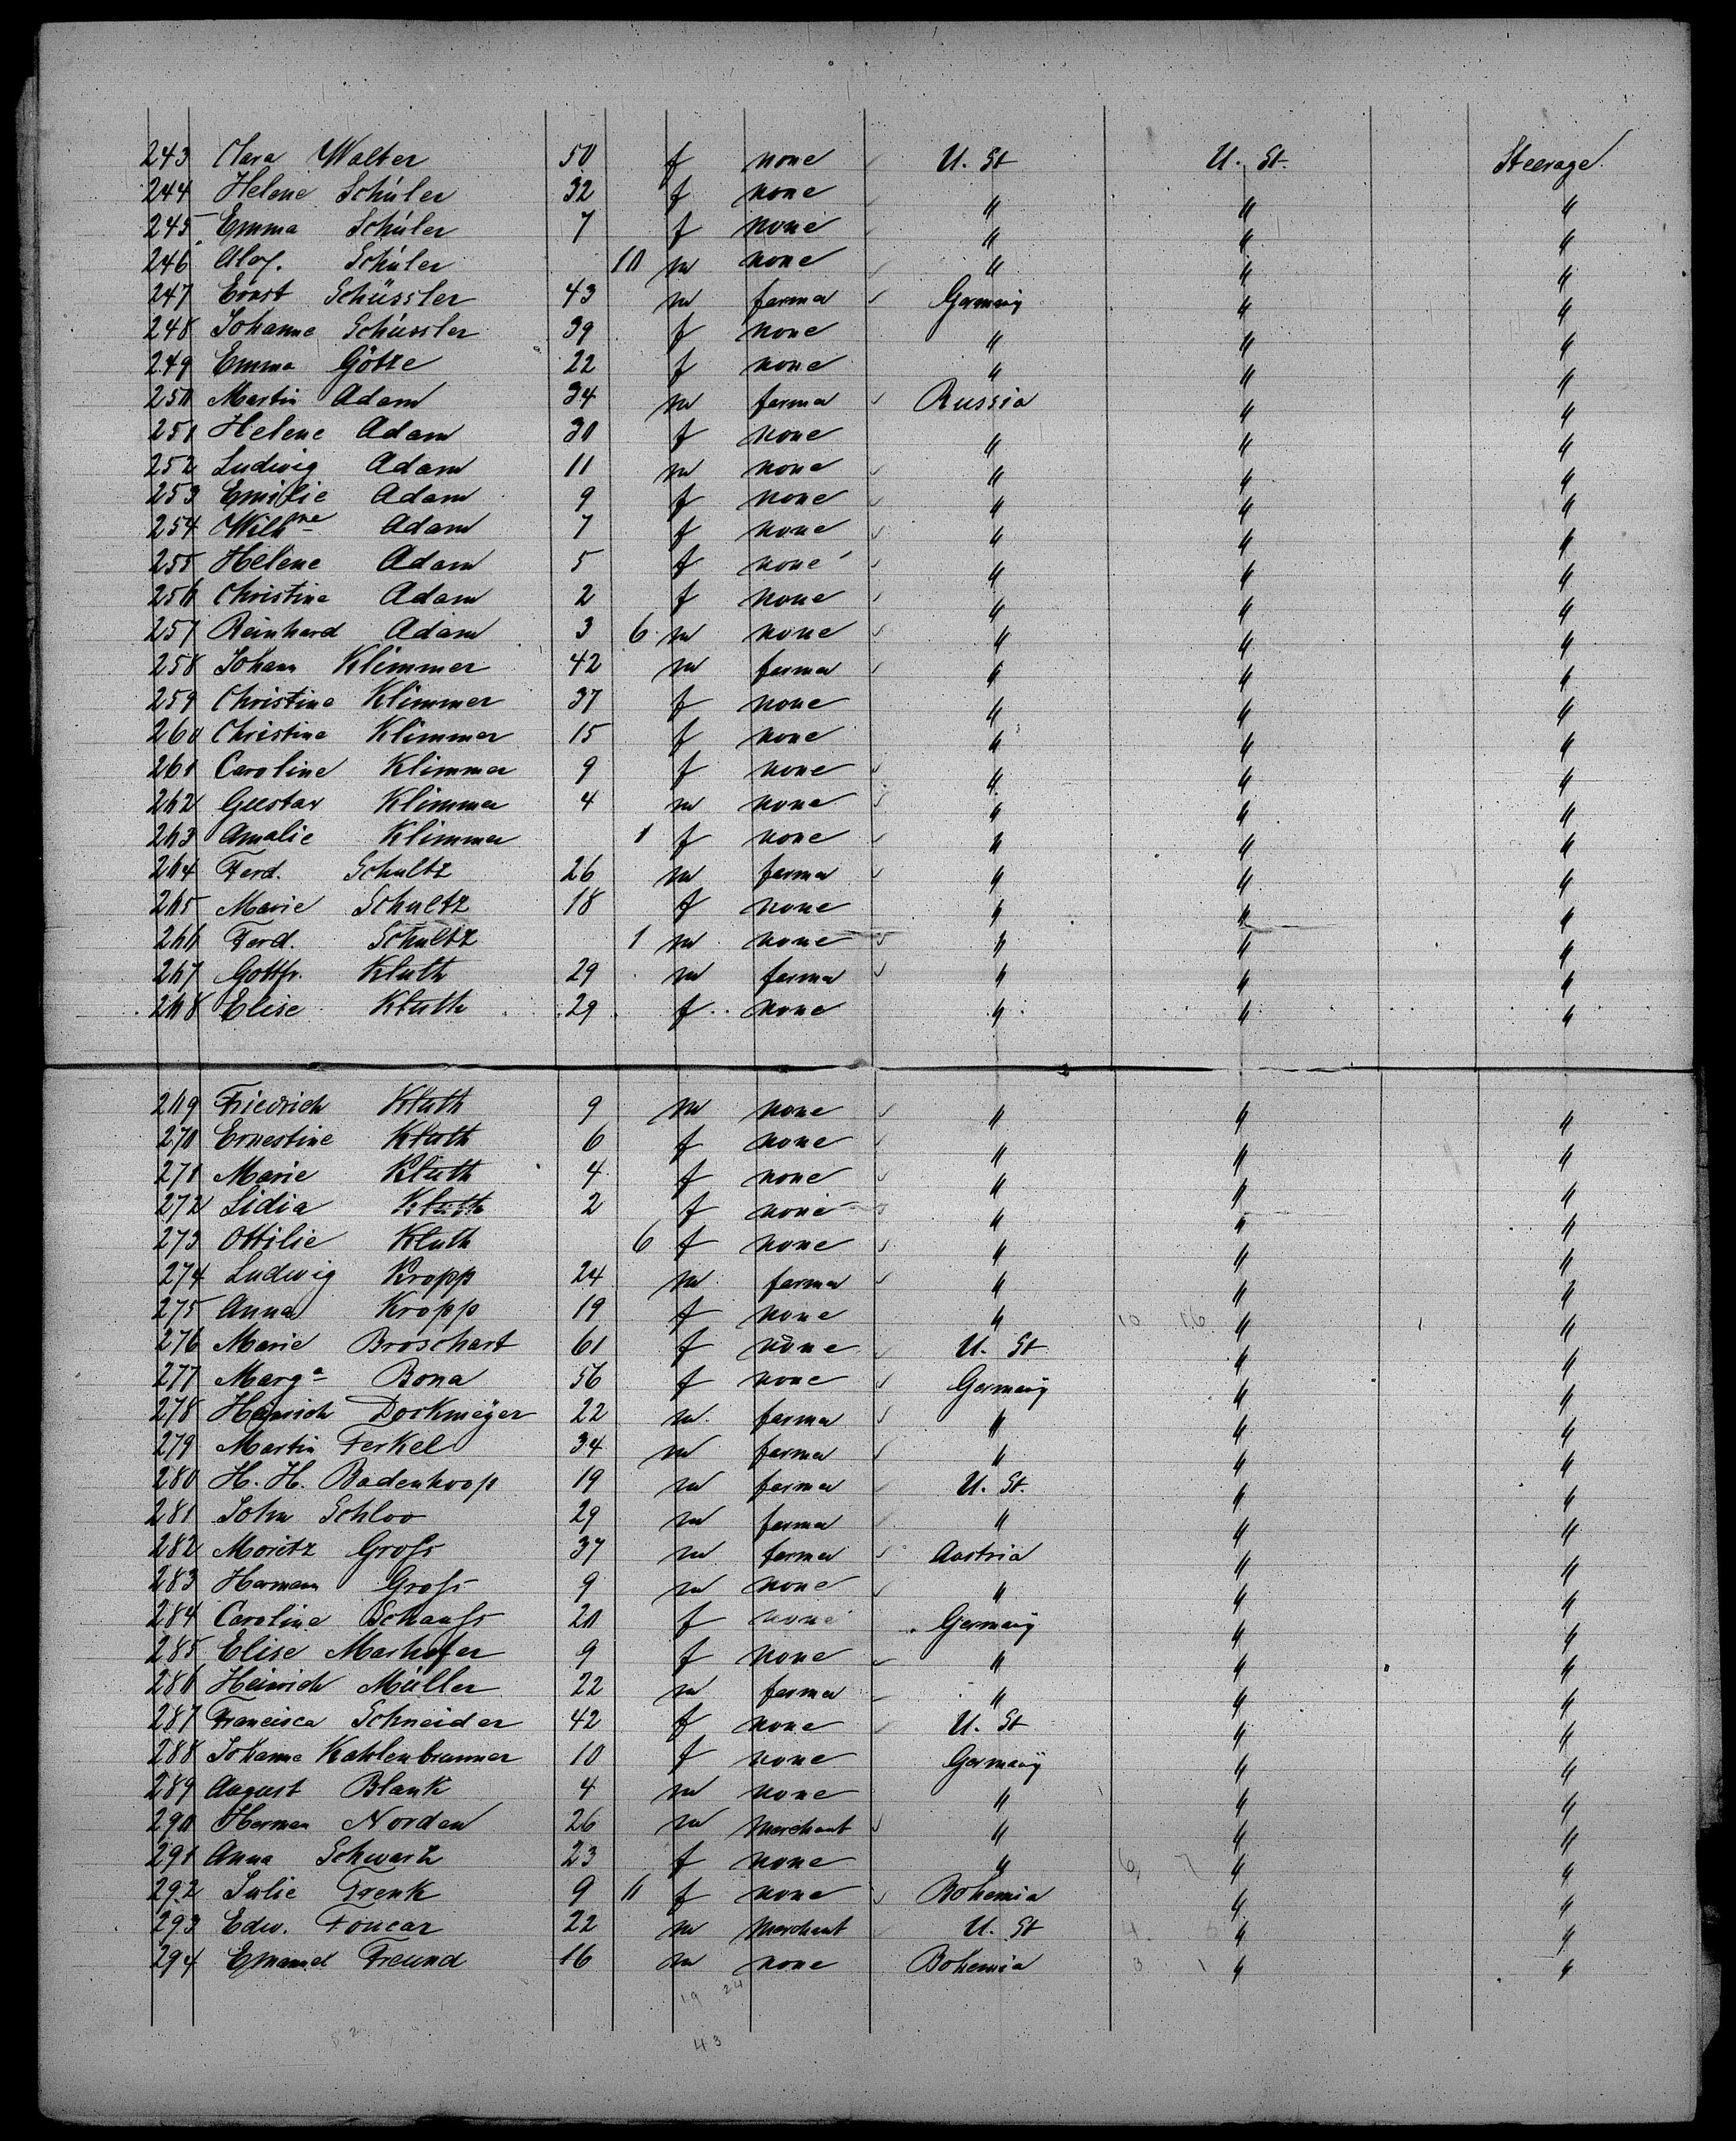 243 Clara Walter 50 f none U. St U. St. Steerage
244 Helene Schüler 32 f none " " "
245 Emma Schüler 7 f none " " "
246 Schüler 10 m none " " "
247 Ernst Schüssler 43 m farmer Germany " "
248 Johanne Schüssler 39 f none " " "
249 Emma Götze 22 f none " " "
250 Martin Adam 34 m farmer Russia " "
251 Helene Adam 30 f none " " "
252 Ludwig Adam 11 m none " " "
253 Emilie Adam 9 f none " " "
254 Wilhne Adam 7 f none " " "
255 Helene Adam 5 f none " " "
256 Christine Adam 2 f none " " "
257 Reinhard Adam 3 6 m none " " "
258 Johann Klimmer 42 m farmer " " "
259 Christine Klimmer 37 f none " " "
260 Christine Klimmer 15 f none " " "
261 Caroline Klimmer 9 f none " " "
262 Gustav Klimmer 4 m none " " "
263 Amalie Klimmer 1 f none " " "
264 Ferd. Schultz 26 m farmer " " "
265 Marie Schultz 18 f none " " "
266 Ferd. Schultz 1 m none " " "
267 Gottfr. Kluth 29 m farmer " " "
268 Elise Kluth 29 f none " " "
269 Friedrich Kluth 9 m none " " "
270 Ernestine Kluth 6 f none " " "
271 Marie Kluth 4 f none " " "
272 Lidia Kluth 2 f none " " "
273 Ottilie Kluth 6 f none " " "
274 Ludwig Kropp 24 m farmer " " "
275 Anna Kropp 19 f none " 10 16 " "
276 Marie Broschart 61 f none U. St " "
277 Marga Bona 56 f none Germany " "
278 Heinrich Dorkmeyer 22 m farmer " " "
279 Martin Ferkel 34 m farmer " " "
280 H. H. Badenhoop 19 m farmer U. St. " "
281 John Schloo 29 m farmer " " "
282 Moritz Groß 37 m farmer Austria " "
283 Hermann Groß 9 m none " " "
284 Caroline Schauß 20 f none Germany " "
285 Elise Marhofer 9 f none " " "
286 Heinrich Müller 22 m farmer " " "
287 Francisca Schneider 42 f none U. St " "
288 Johanne Kahlenbrunner 10 f none Germany " "
289 August Blank 4 m none " " "
290 Herman Norden 26 m Merchant " " "
291 Anna Schwartz 23 f none " 6 7 " "
292 Julie Frenk 9 11 f none Bohemia " "
293 Edw. Foucar 22 m Merchant U. St 4 " "
294 Emanuel Freund 16 m none Bohemia 3 1 " "
19 24
43